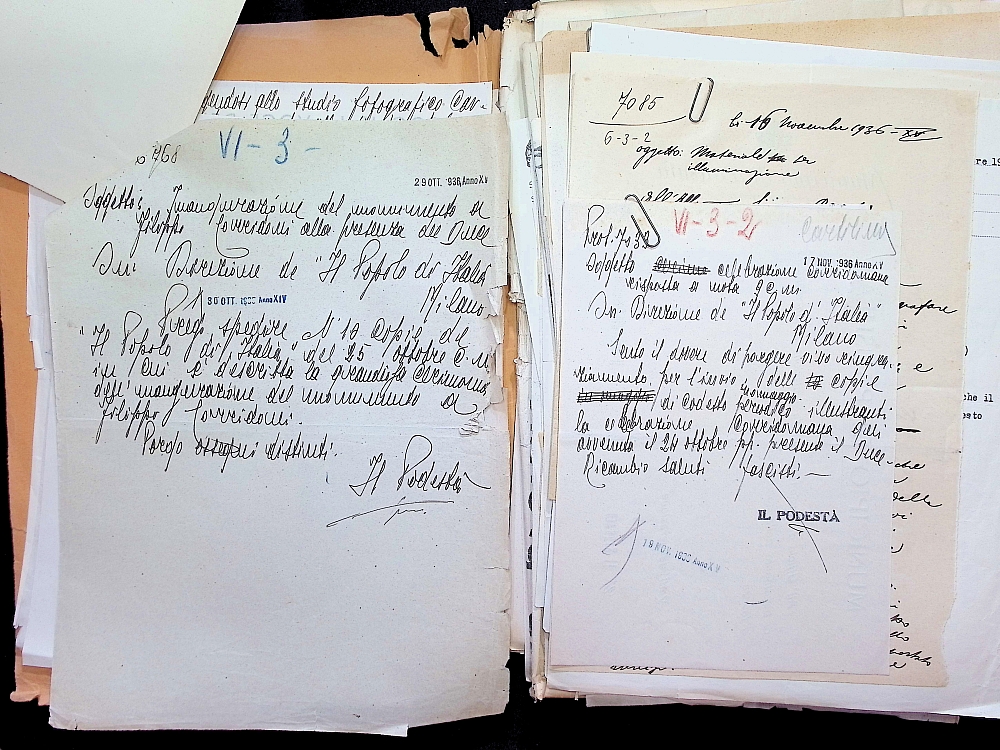 gendosi allo studio fotografico Cav-
768
VI-3-
29 OTT. 1936 Anno XIV
Oggetto: Inaugurazione del monumento a
Filippo Corridoni alla presenza del Duce
On: Direzione de "Il Popolo di Italia
Milano
30 OTT. 1936 Anno XIV
Prego spedire N° 10 copie de
"Il Popolo di Italia" del 25 ottobre c.m.
in cui è descritta la grandiosa cerimonia
dell'inaugurazione del monumento a
Filippo Corridoni.
Porgo ossequi distinti.
Il Podestà
7085
6-3-2
li 16 Novembre 1936-XV
oggetto: Materiale per
illuminazione
VI-3-2
Prot. 7032
17 NOV. 1936 Anno XV
Oggetto celebrazione Corridoniana
risposta a nota 9 c.m.
On. Direzione de "Il Popolo d'Italia"
Milano
Sento il dovere di porgere vivo ringra-
ziamento per l'invio in omaggio delle copie
di codesto periodico illustranti
la celebrazione Corridoniana qui
avvenuta il 24 ottobre pp. presente il Duce
Ricambio saluti fascisti.-
IL PODESTÀ
18 NOV. 1936 Anno XV
che il
esto
della